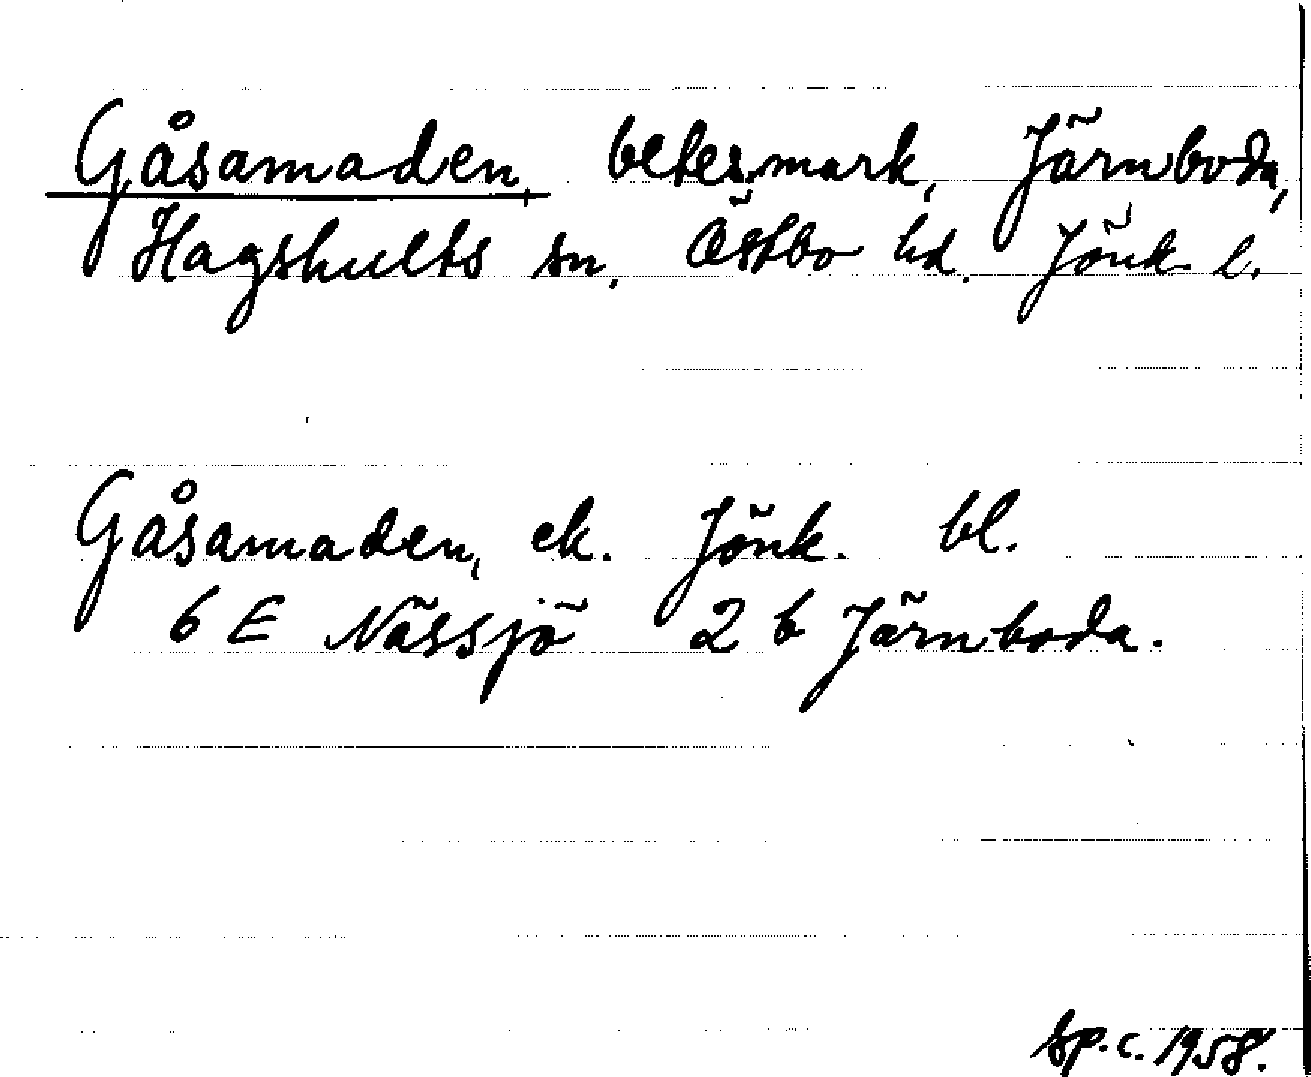 Gåsamaden, betesmark, Järnboda,
Hagshults sn, Östbo hd. Jönk. l.
Gåsamaden, ek. Jönk. bl.
6 E Nässjö 2 b Järnboda.
Sp. c. 1958.